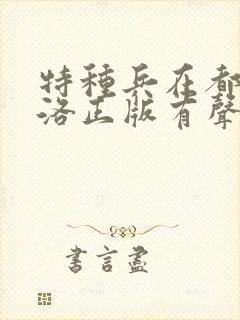 特種兵在都
洛正版有聲
書言盡